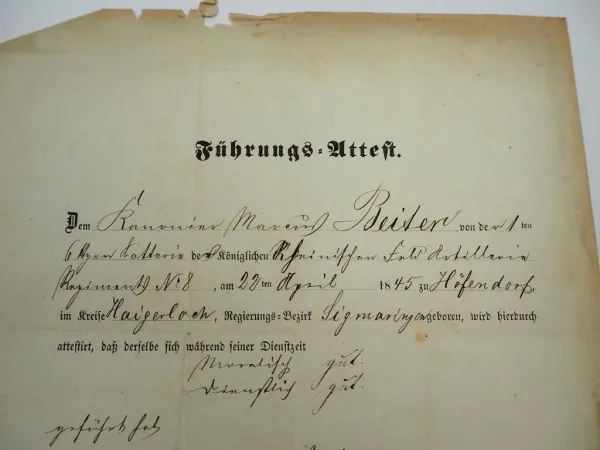 Führungs-Attest.
Dem Kanonier Marcus Beiter von der 1ten
6 Batterie des Königlichen Rheinischen Feld Artillerie
Regiments No 8, am 22ten April 1845 zu Höfendorf,
im Kreise Haigerloch, Regierungs-Bezirk Sigmaringen geboren, wird hierdurch
attestirt, daß derselbe sich während seiner Dienstzeit
Moralisch gut.
Dienstlich gut.
geführt hat